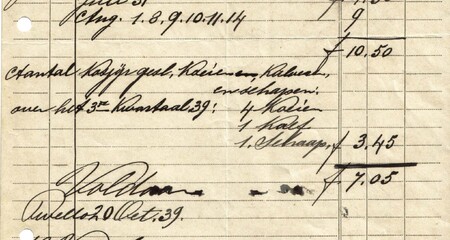 Juli 31
Aug. 1.8.9.10.11.14 9
f 10.50
Aantal Kosjer gesl. Koeien en Kalveren
en schapen.
over het 3de Kwartaal 39: 4 Koeien
1 Kalf
1. Schaap, f 3.45
f 7.05
Voldaan
Twello 20 Oct. 39.